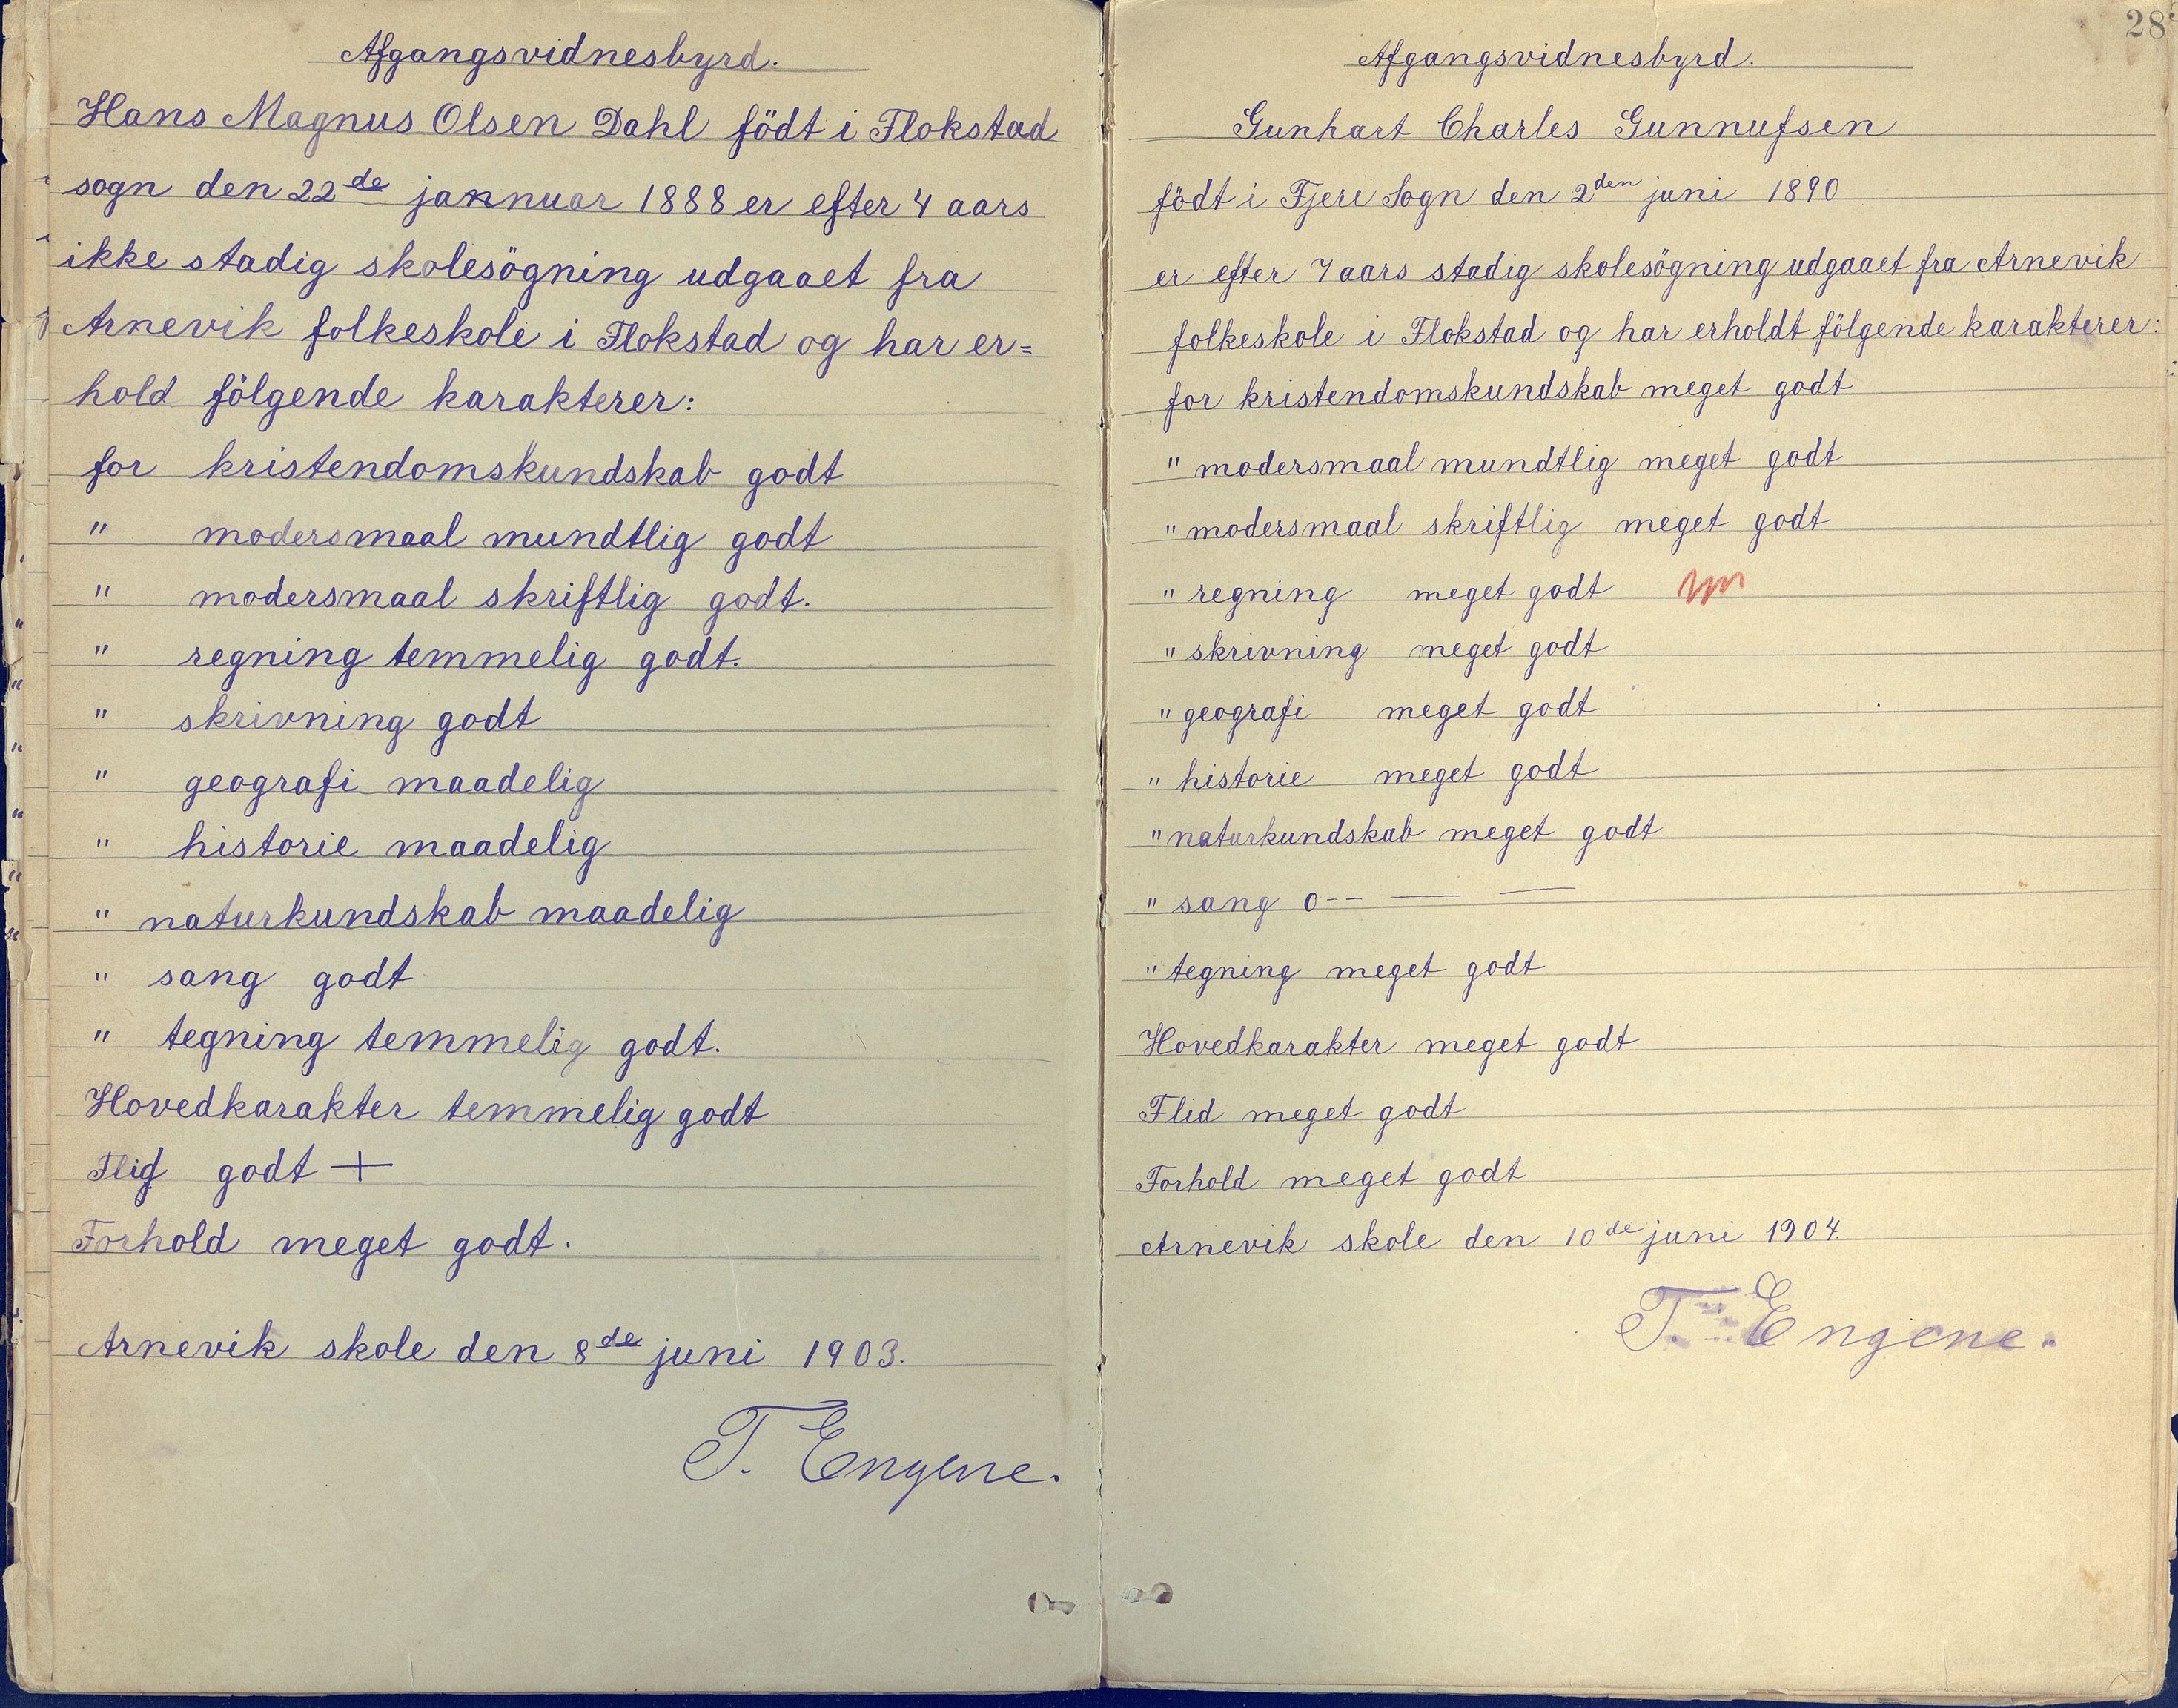 Afgangsvidnesbyrd.
Hans Magnus Olsen Dahl födt i Flokstad
sogn den 22de jannuar 1888 er efter 4 aars
ikke stadig skolesögning udgaaet fra
Arnevik folkeskole i Flokstad og har er=
hold fölgende karakterer:
for kristendomskundskab godt
" modersmaal mundtlig godt
" modersmaal skriftlig godt.
" regning temmelig godt.
" skrivning godt
" geografi maadelig
" historie maadelig
" naturkundskab maadelig
" sang godt
" tegning temmelig godt.
Hovedkarakter temmelig godt
Flid godt +
Forhold meget godt.
Arnevik skole den 8de juni 1903.
T. Engene.
28
Afgangsvidnesbyrd.
Gunhart Charles Gunnufsen
födt i Fjere Sogn den 2den juni 1890
er efter 7 aars stadig skolesögning udgaaet fra Arnevik
folkeskole i Flokstad og har erholdt fölgende karakterer:
for kristendomskundskab meget godt
" modersmaal mundtlig meget godt
" modersmaal skriftlig meget godt
" regning meget godt
" skrivning meget godt
" geografi meget godt
" historie meget godt
" naturkundskab meget godt
" sang 0-- — —
" tegning meget godt
Hovedkarakter meget godt
Flid meget godt
Forhold meget godt
Arnevik skole den 10de juni 1904.
T. Engene.